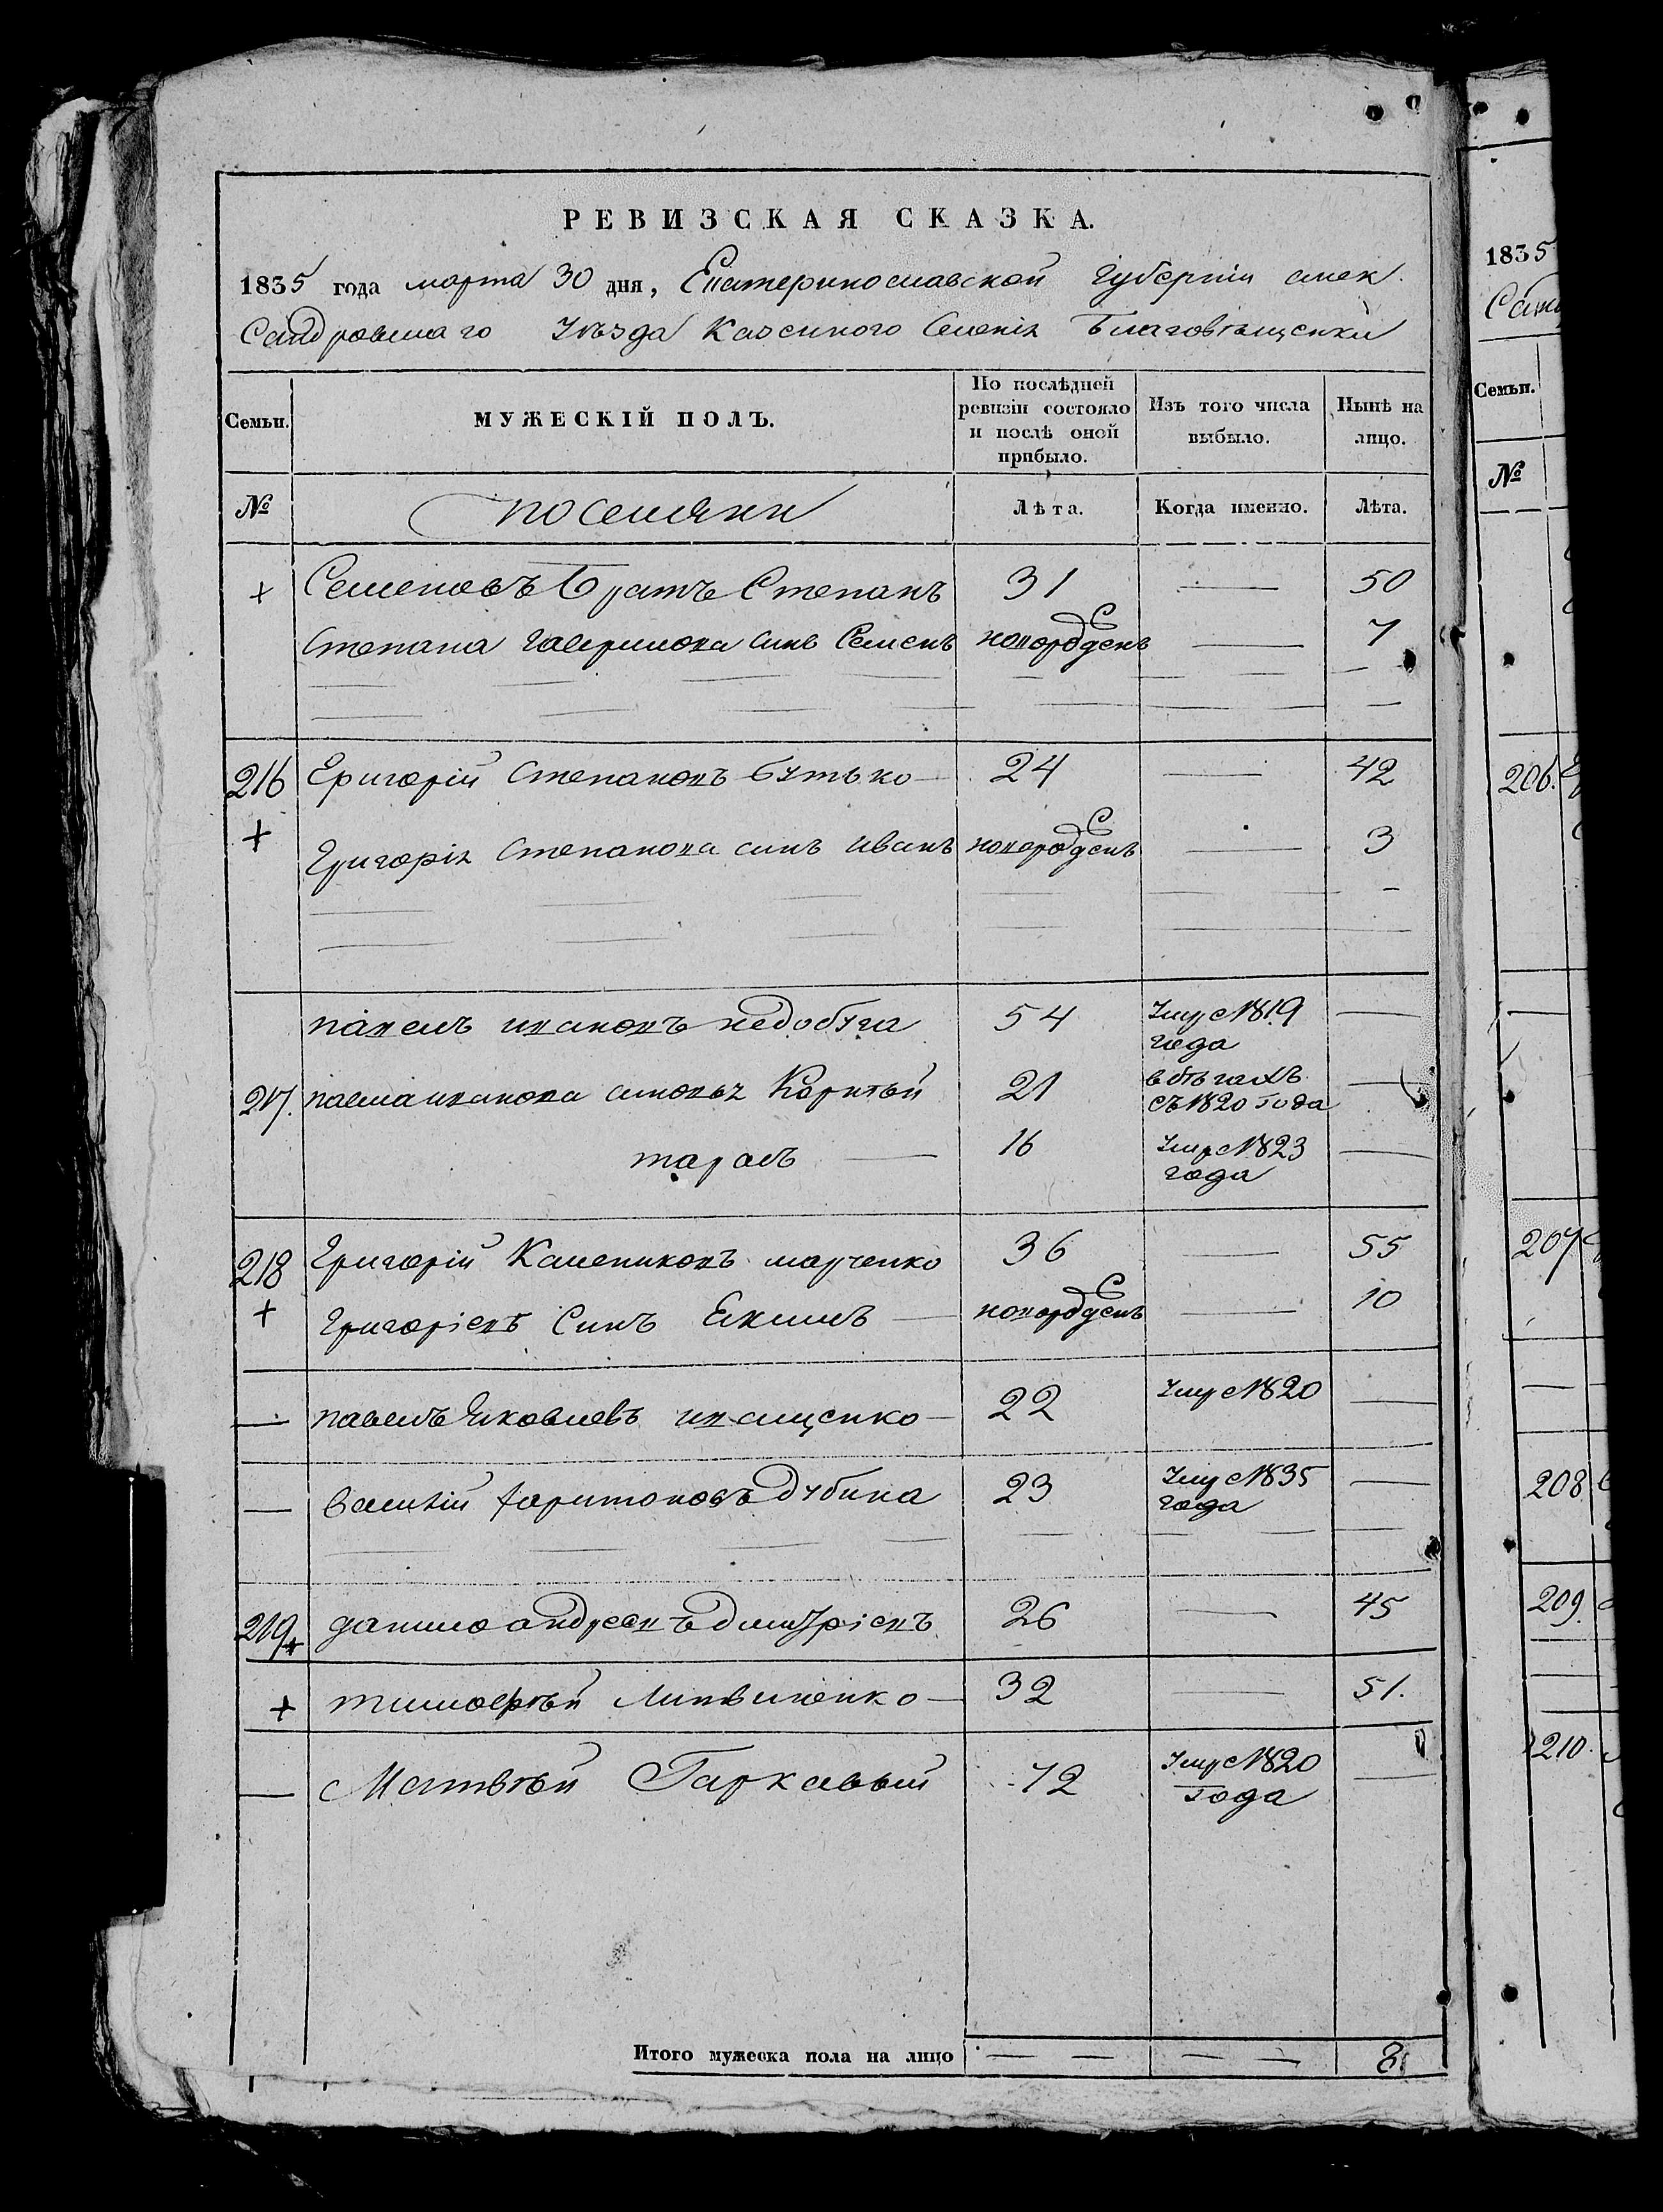 РЕВИЗСКАЯ СКАЗКА.
1835 года марта 30 дня, Екатеринославской губернiи алек
сандровскаго Уѣзда Казенного Селенiя Благовѣщенки
Семьи. МУЖЕСКIЙ ПОЛЪ. По послѣдней ревизiи состояло и послѣ оной прибыло. Изъ того числа выбыло. Нынѣ на лицо.
№ поселяни Лѣта. Когда именно. Лѣта.
+ Семеновъ Братъ Степанъ 31 — 50
Степана Гаврилова синъ Семенъ новорожденъ — 7
216 Григорiй Степановъ Бутько — 24 — 42
+ Григорiя Степанова синъ иванъ новорожденъ — 3
павелъ ивановъ недобуга 54 Умре 1819 года —
217. павла иванова синовья Корнѣй 21 в бѣгахъ съ 1820 года —
тарасъ — 16 Умре 1823 года —
218 Григорiй Калениковъ марченко 36 — 55
+ Григорiевъ Синъ Екимъ — новорожденъ — 10
— павелъ Яковлевъ иващенко — 22 Умре 1820 —
— Василiй харитоновъ дубина 23 Умре 1835 года —
219 + данило андреевъ дмитрiевъ 26 — 45
+ тимофѣй Литвиненко — 32 — 51.
— Матвѣй Гаркавый 72 Умре 1820 года —
Итого мужеска пола на лицо — — — — 8
1835
Семьи.
№
206.
207
208
209.
210.